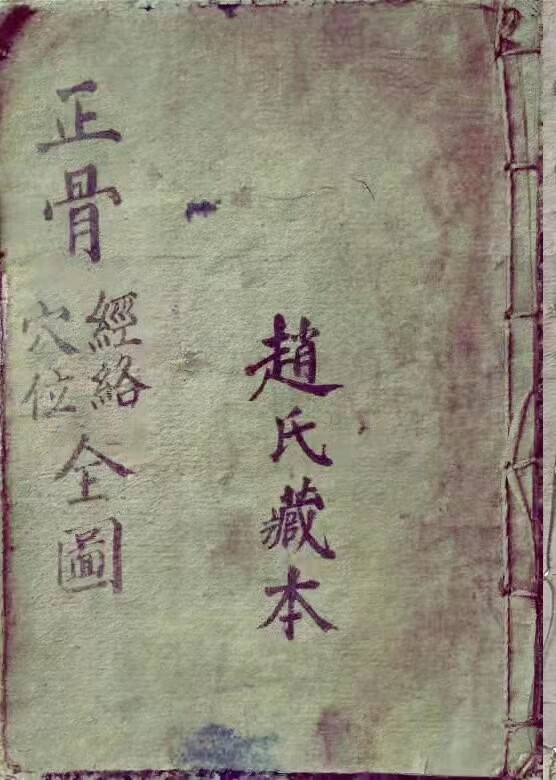 趙氏藏本
正骨經絡穴位全圖